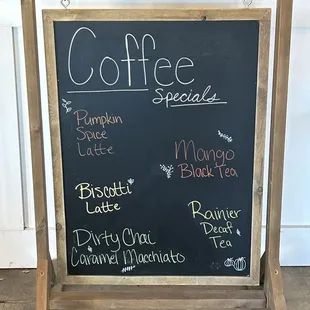 Coffee
Specials
Pumpkin
Spice
Latte
Mango
Black Tea
Biscotti
Latte
Rainier
Decaf
Tea
Dirty Chai
Caramel Macchiato